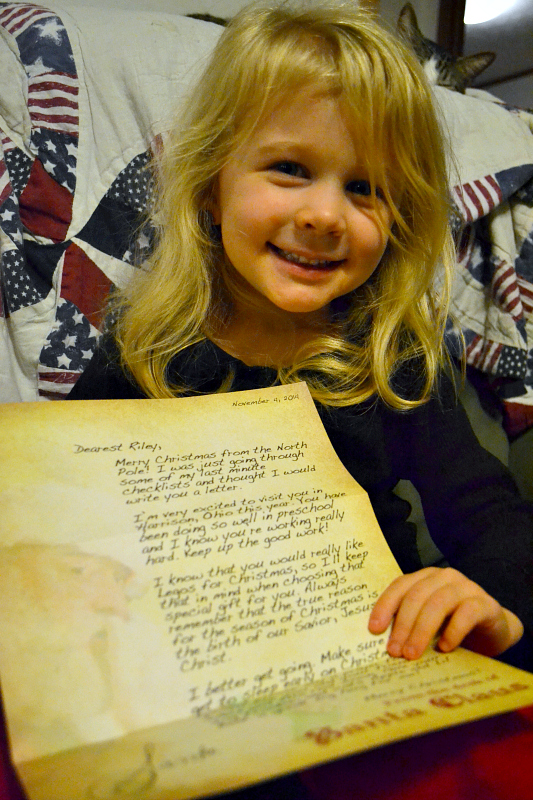 November 4, 2011
Dearest Riley,
Merry Christmas from the North
Pole! I was just going through
some of my last minute
checklists and thought I would
write you a letter.
I'm very excited to visit you in
Harrison, Ohio this year. You have
been doing so well in preschool
and I know you're working really
hard. Keep up the good work!
I know that you would really like
Legos for Christmas, so I'll keep
that in mind when choosing that
special gift for you. Always
remember that the true reason
for the season of Christmas is
the birth of our Savior, Jesus
Christ.
I better get going. Make sure
get to sleep early on Christmas
Merry Christmas!
Santa Claus
Santa